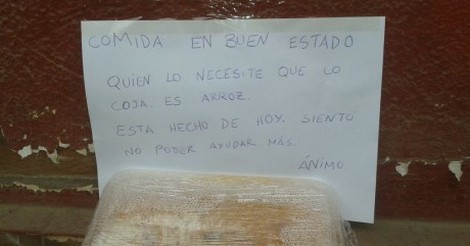 COMIDA EN BUEN ESTADO
QUIEN LO NECESITE QUE LO
COJA. ES ARROZ.
ESTA HECHO DE HOY. SIENTO
NO PODER AYUDAR MÁS.
ÁNIMO